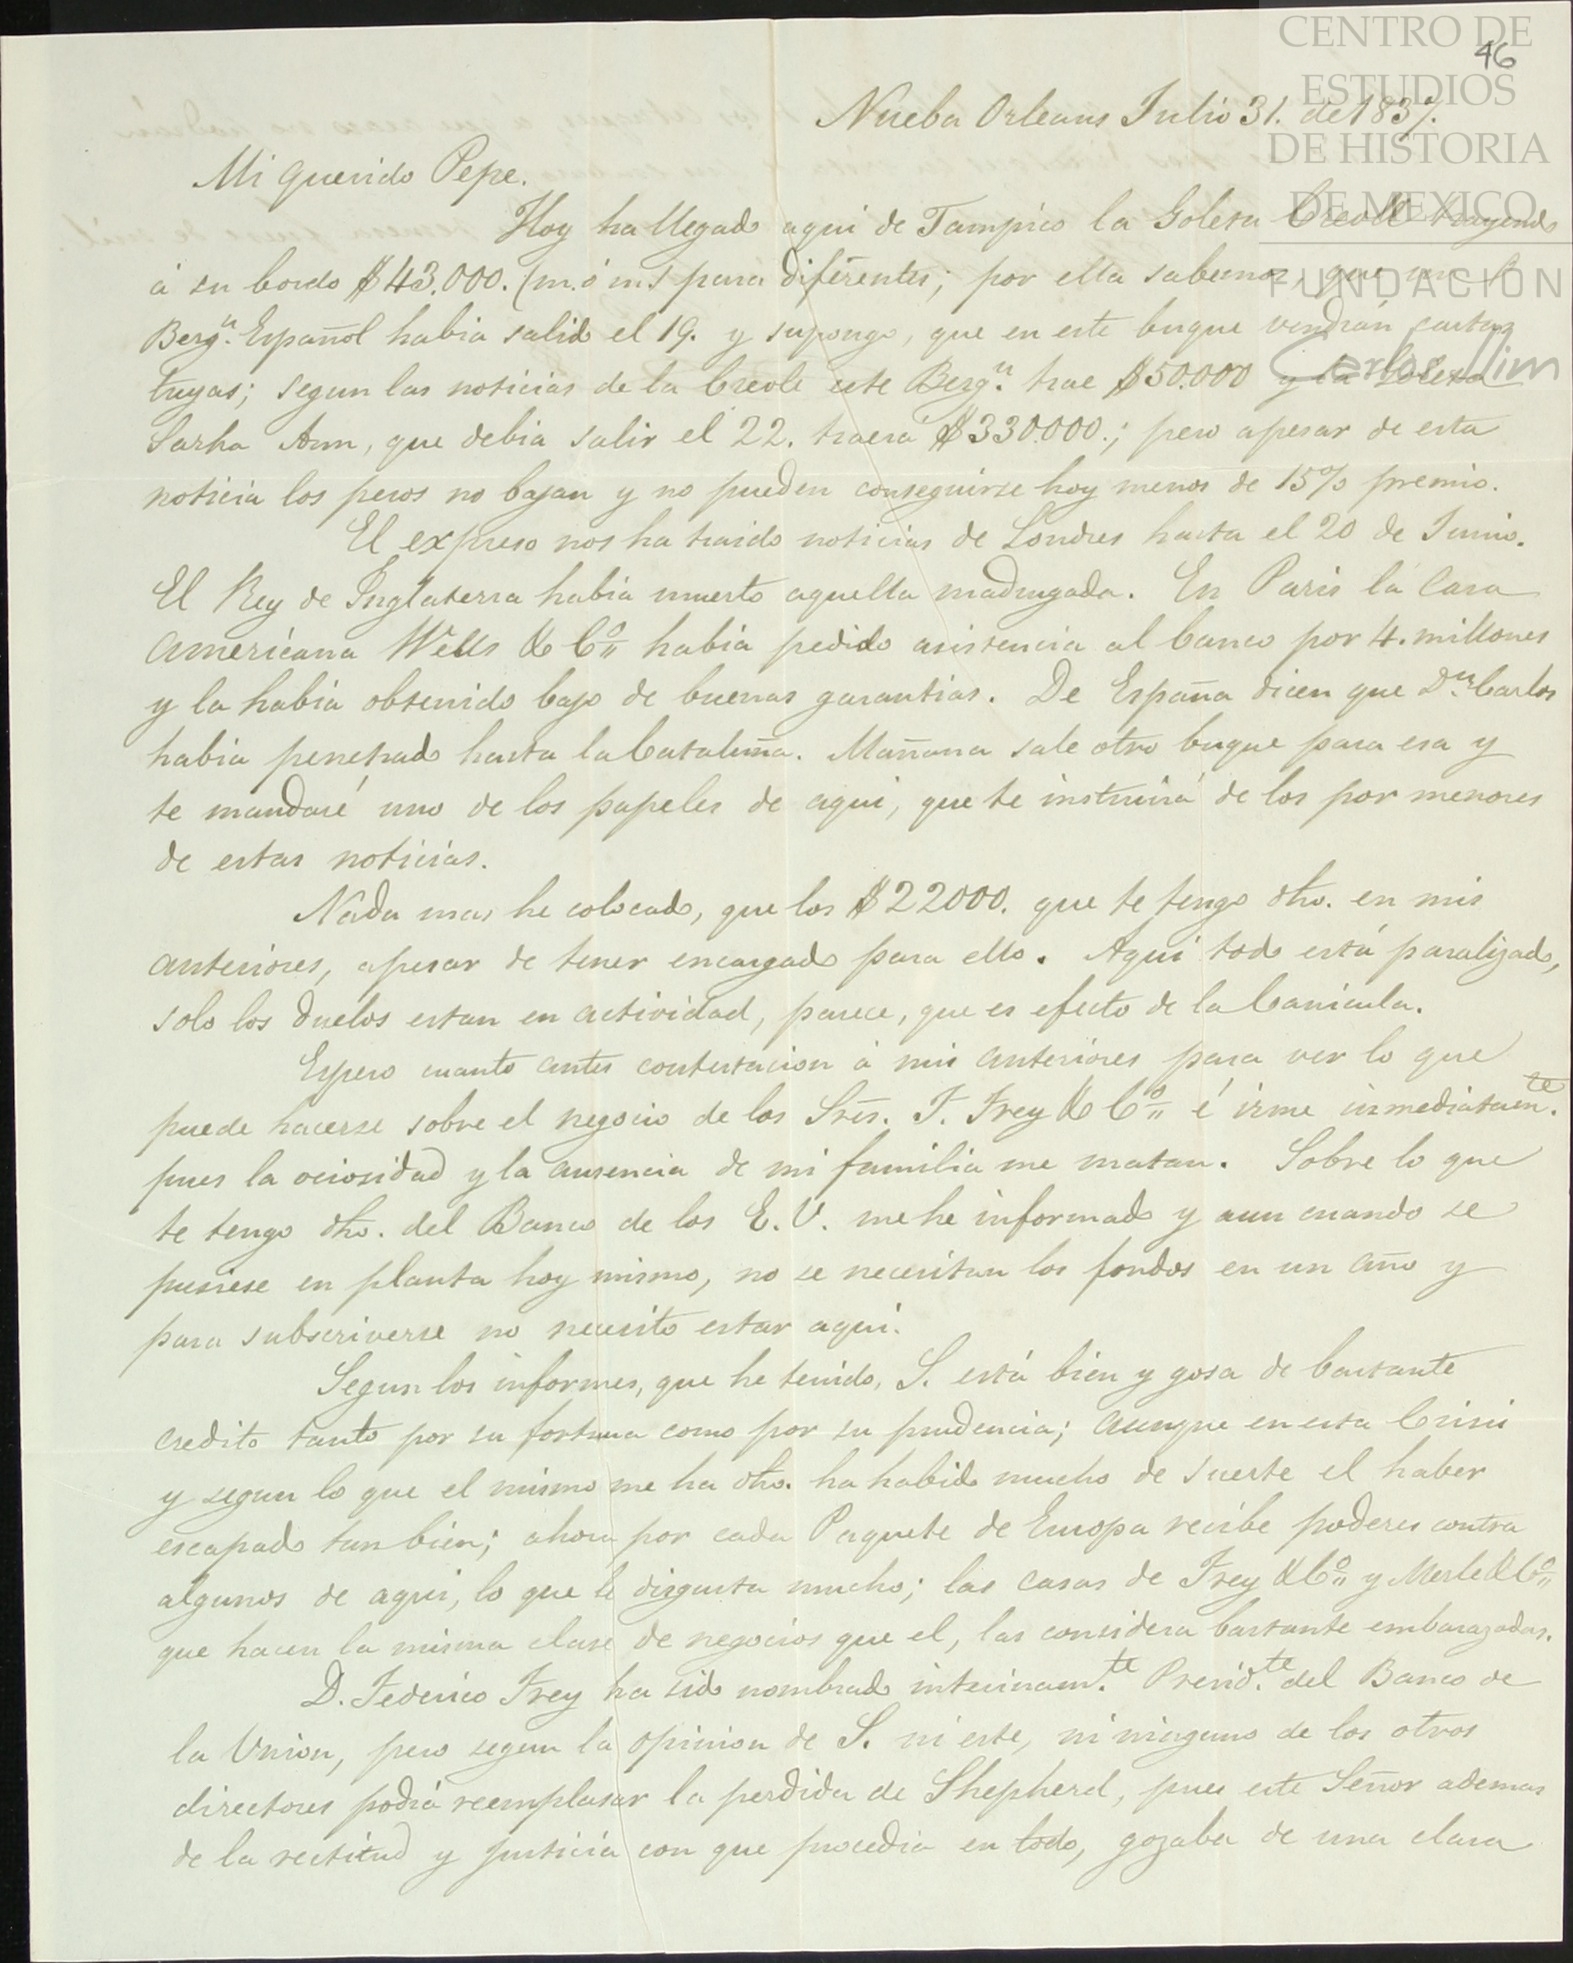 CENTRO DE
ESTUDIOS
DE HISTORIA
DE MEXICO
FUNDACION
Carlos Slim
46
Nueba Orleans Julio 31. de 1837.
Mi querido Pepe.
Hoy ha llegado aqui de Tampico la Goleta Creole trayendo
á su bordo $43.000. (m. ó m.) para diferentes; por ella sabemos, que un
Bergn. Español habia salido el 19. y supongo, que en este buque vendrán cartas
tuyas; segun las noticias de la Creole este Bergn. trae $50.000 y la Goleta
Sarha Ann, que debia salir el 22. traera $330.000.; pero apesar de esta
noticia los pesos no bajan y no pueden conseguirse hoy menos de 15% premio.
El expreso nos ha traido noticias de Londres hasta el 20 de Junio.
El Rey de Inglaterra habia muerto aquella madrugada. En Paris la Casa
Americana Wells & Co. habia pedido asistencia al banco por 4. millones
y la habia obtenido bajo de buenas garantias. De España dicen que Dn. Carlos
habia penetrado hasta la Cataluña. Mañana sale otro buque para esa y
te mandaré uno de los papeles de aqui, que te instruirá de los por menores
de estas noticias.
Nada mas he colocado, que los $22000. que te tengo dho. en mis
anteriores, apesar de tener encargado para ello. Aqui todo está paralizado,
solo los duelos estan en actividad, parece, que es efecto de la Canicula.
Espero cuanto antes contestacion á mis anteriores para ver lo que
puede hacerse sobre el negocio de los Sres. F. Frey & Co. é irme inmediatamte.
pues la ociosidad y la ausencia de mi familia me matan. Sobre lo que
te tengo dho. del Banco de los E. U. me he informado y aun cuando se
pusiese en planta hoy mismo, no se necesitan los fondos en un año y
para subscriverse no necesito estar aqui.
Segun los informes, que he tenido, S. está bien y gosa de bastante
credito tanto por su fortuna como por su prudencia; aunque en esta Crisis
y segun lo que el mismo me ha dho. ha habido mucho de suerte el haber
escapado tan bien; ahora por cada Paquete de Europa recibe poderes contra
algunos de aqui, lo que le disgusta mucho; las casas de Frey & Co. y Merle & Co.
que hacen la misma clase de negocios que el, las considera bastante embarazadas.
D. Federico Frey ha sido nombrado interinamte. Presidte. del Banco de
la Union, pero segun la opinion de S. ni este, ni ninguno de los otros
directores podrá reemplasar la perdida de Shepherd, pues este Señor ademas
de la rectitud y justicia con que procedia en todo, gozaba de una clara